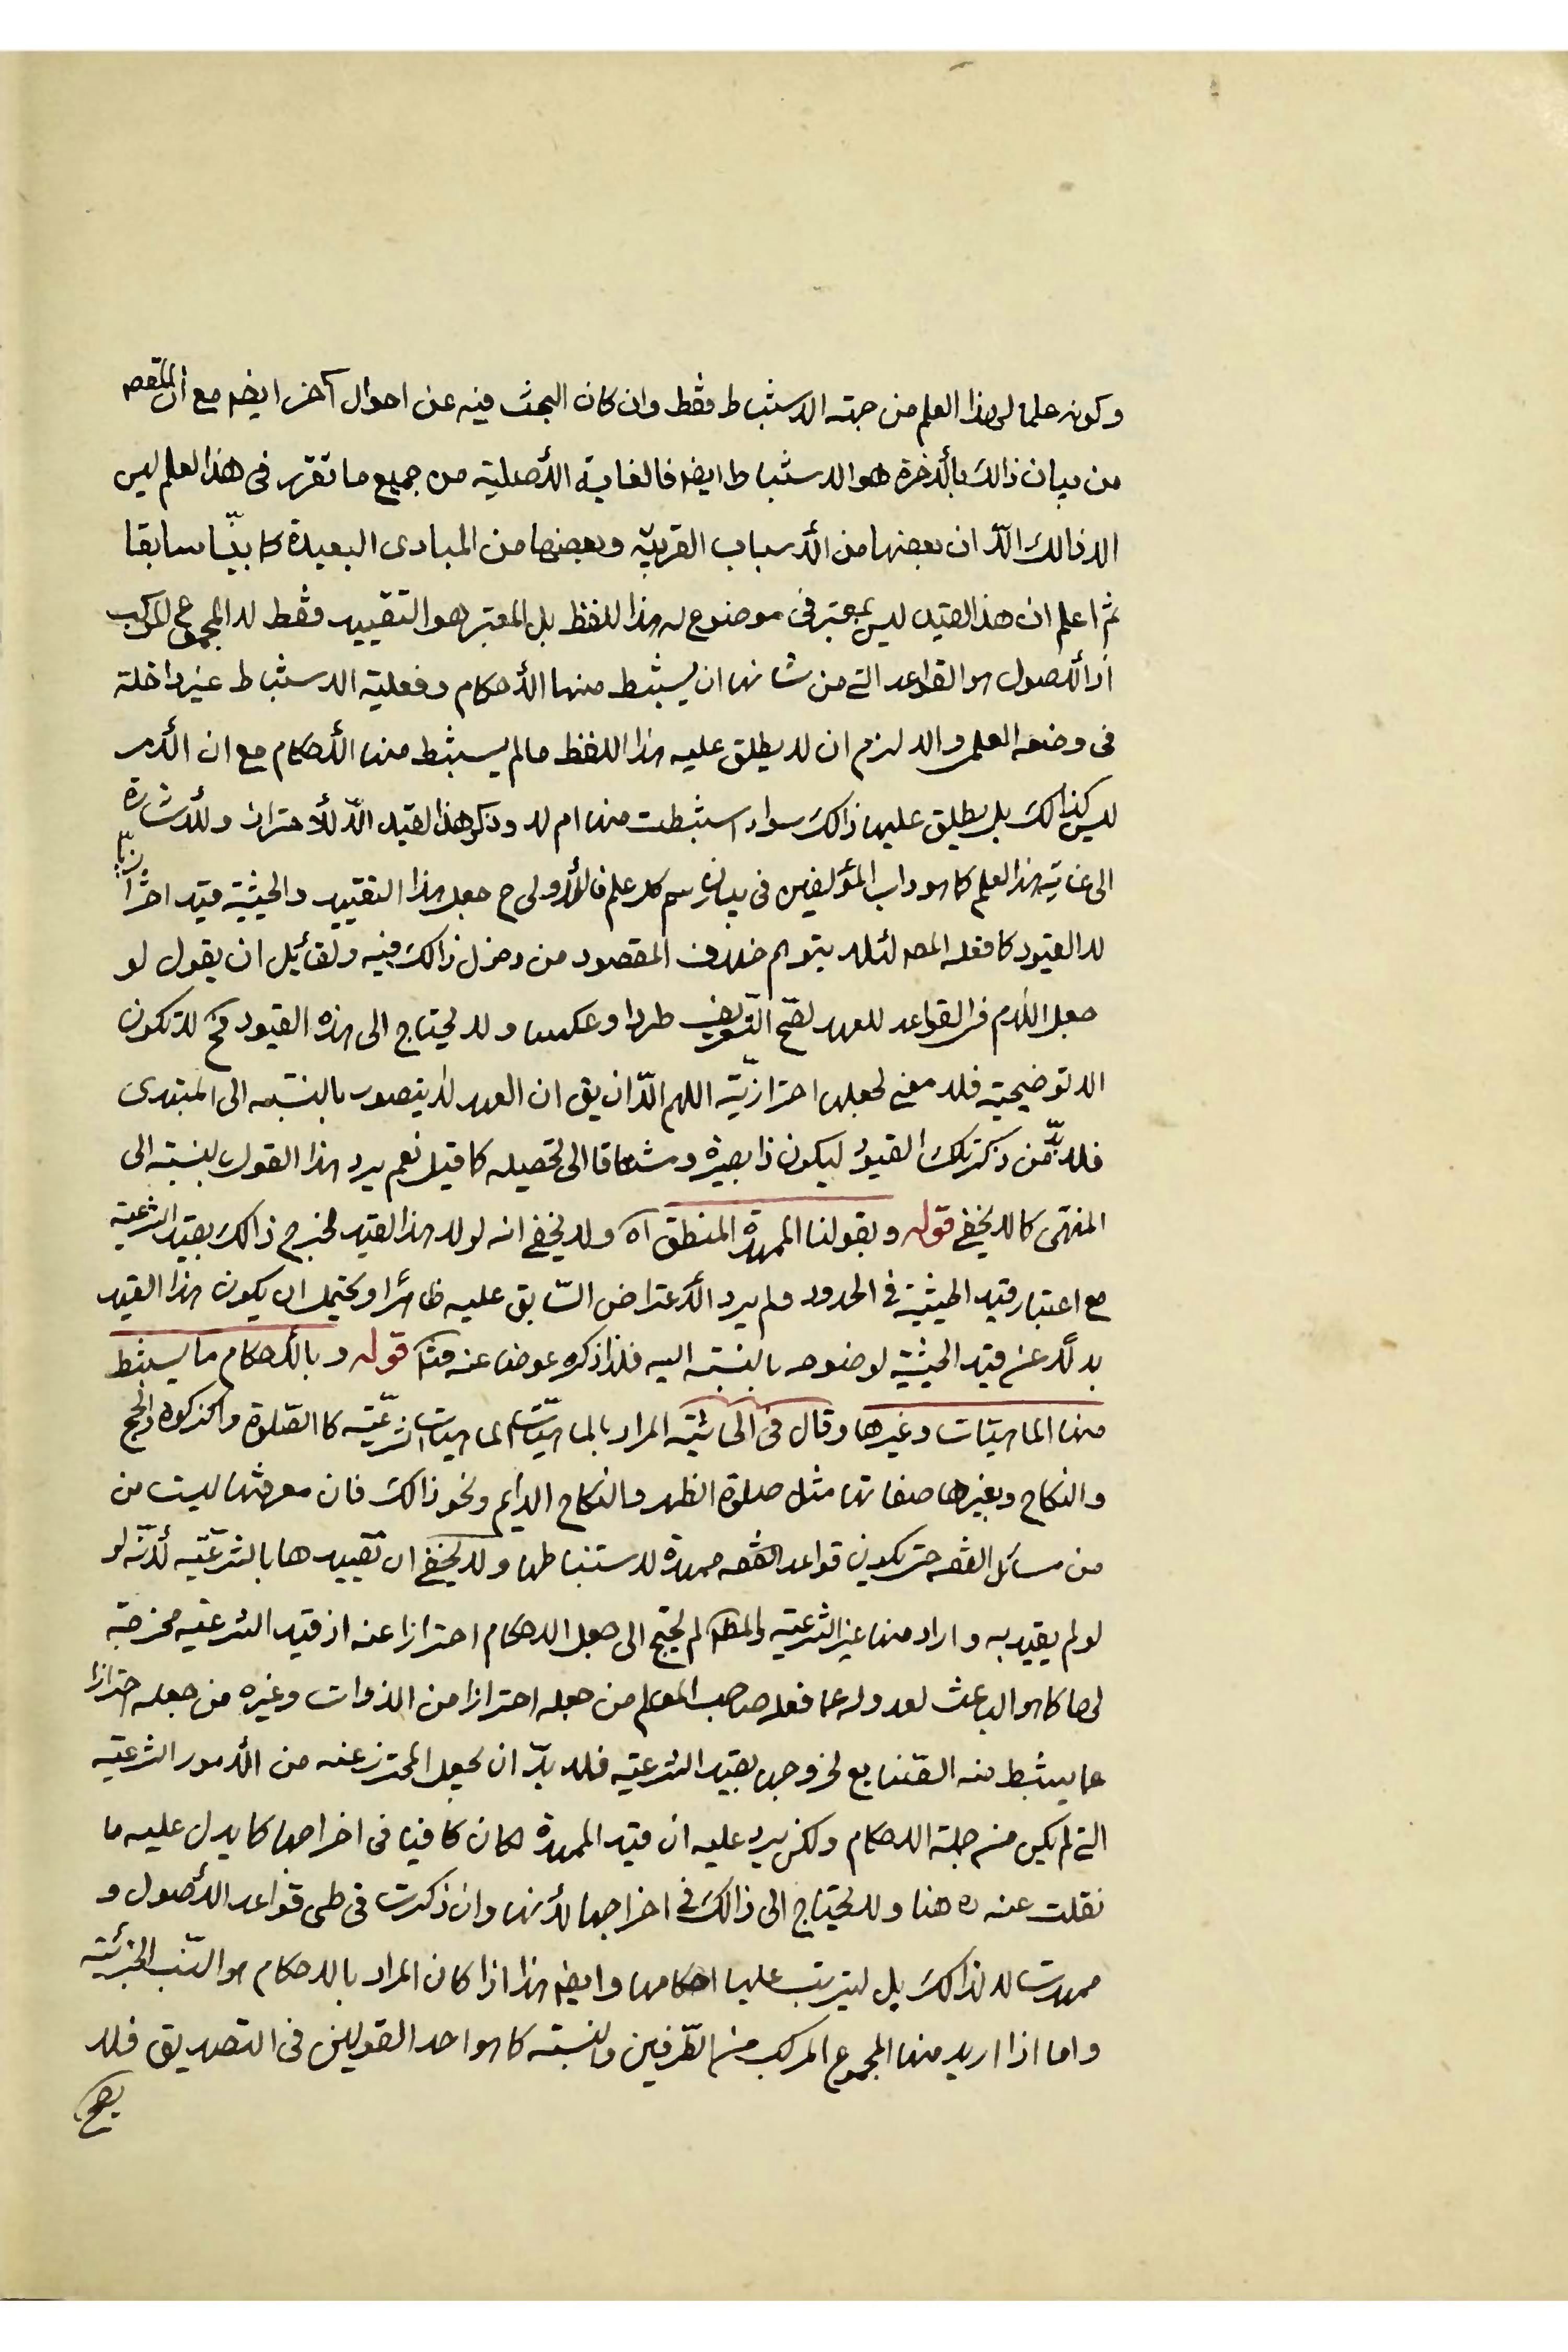 وكونه علما لهذا العلم من جهة الاستنباط فقط وان كان البحث فيه عن احوال آخر ايضا مع ان المقصد
من بيان ذالك بالأخرة هو الاستنباط ايضا فالغاية الأصلية من جميع ما تقرر فى هذا العلم ليس
الا ذالك الّا ان بعضها من الأسباب القريبة وبعضها من المبادى البعيدة كما بيّنا سابقا
ثم اعلم ان هذا القيد ليس بمعتبر فى موضوع له هذا اللفظ بل المعتبر هو التقييد فقط لا المجموع المركب
اذ الأصول هو القواعد التے من شانها ان يستنبط منها الأحكام وفعلية الاستنباط غير داخلة
فى وضعه العلمى والا لزم ان لا يطلق عليه هذا اللفظ ما لم يستنبط منها الأحكام مع ان الأمر
ليس كذالك بل يطلق عليها ذالك سواء استنبطت منها ام لا وذكر هذا القيد الّا للأحتراز وللأشارة
الى غاية هذا العلم كما هو داب المؤلفين فى بيان رسم كل علم فالأولى ح جعل هذا التقييد والحيثية قيد احترازيا
لا القيود كما فعله المصـ لئلا يتوهم خلاف المقصود من دخول ذالك فيه ولقائيل ان يقول لو
جعل اللام فى القواعد للعهد لصّح التعريف طردا وعكسا ولا يحتاج الى هذه القيود فح لا تكون
الا توضيحية فلا معنى لجعلها احترازيّة اللهم الّا ان يق ان العهد لا يتصور بالنسبة الى المبتدى
فلا بدّ من ذكر تلك القيود ليكون ذا بصيرة ومشتاقا الى تحصيله كما قيل نعم يرد هذا القول بالنسبة الى
المنتهى كما لا يخفے قوله وبقولنا الممهدة المنطق آه ولا يخفے انه لولا هذا القيد لخرج ذالك بقيد الشرعية
مع اعتبار قيد الحيثية فى الحدود ولم يرد الأعتراض السّابق عليه ظاهرا ويحتمل ان يكون هذا القيد
بدلاً عن قيد الحيثية لوضوحه بالنسبة اليه فلذا ذكره عوضا عنه فتم قوله وبالأحكام ما يستنبط
منها الماهيّات وغيرها وقال فى الحاشية المراد بالماهيّات الماهيات الشرعيّة كالصّلوة والزكوة والحج
والنكاح وبغيرها صفاتها مثل صلوة الظهر والنكاح الدايم ونحو ذالك فان معرفتها ليست من
من مسائل الفقه حتى يكون قواعد الفقه ممهدة لاستنباطها ولا يخفے ان تقييدها بالشرعيّة لأنّه لو
لو لم يقيد به واراد منها غير الشرعية والمطم لم يحتج الى جعل الاحكام احترازا عنه اذ قيد الشرعية مخرجة
لها كما هو الباعث لعدوله عما فعل صاحب المعالم من جعله احترازا من الذوات وغيره من جعله احترازا
عما يستنبط منه الصّنايع لخروجها بقيد الشرعية فلا بدّ ان يجعل المحترز عنه من الأمور الشرعية
التے لم يكن من جملة الاحكام ولكن يرد عليه ان قيد الممهدة لكان كافيا فى اخراجها كما يدل عليه ما
نقلت عنه ره هنا ولا يحتاج الى ذالك فى اخراجها لأنها وان ذكرت فى طى قواعد الأصول و
مهدت لا لذالك بل ليترتب عليها احكامها وايضا هذا اذا كان المراد بالاحكام هو النّسب الجزئية
واما اذا اريد منها المجموع المركب من الطّرفين والنسبة كما هو احد القولين فى التصديق فلا
يصح